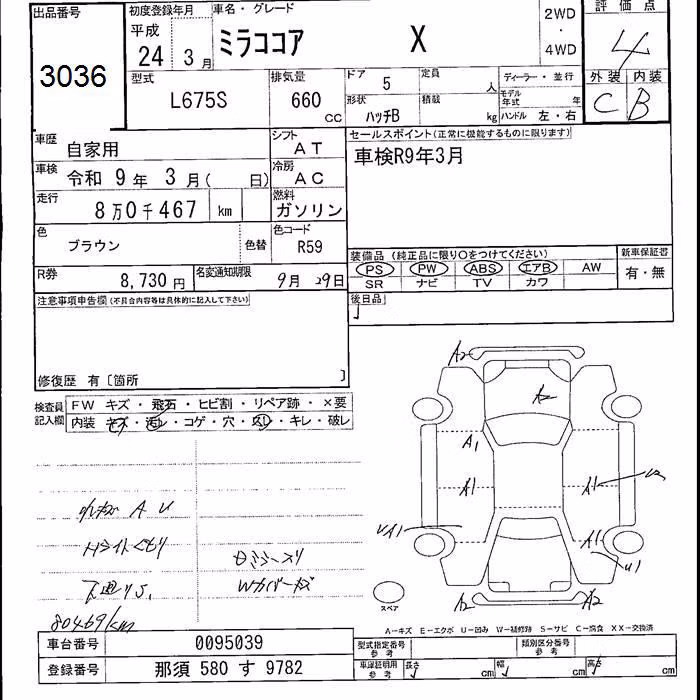 出品番号
3036
初度登録年月
平成
24年 3月
車名・グレード
ミラココア X
2WD
・
4WD
評価点
4
外装 内装
C B
型式
L675S
排気量
660 CC
ドア 5
定員 人
形状 ハッチB
積載 kg
ディーラー・並行
モデル年式 年
ハンドル 左・右
車歴 自家用
シフト AT
車検 令和 9年 3月( 日)
冷房 AC
走行 8万0千467 km
燃料 ガソリン
色 ブラウン
色替
色コード R59
R券 8,730円
名変通知期限 9月 29日
セールスポイント(正常に機能するものに限ります)
車検R9年3月
装備品 (純正品に限り○をつけてください)
PS PW ABS エアB AW
SR ナビ TV カワ
新車保証書
有・無
後日品
注意事項申告欄(不具合内容等は具体的に記入して下さい)
修復歴 有〔箇所 〕
検査員記入欄
FW キズ・飛石・ヒビ割・リペア跡・×要
内装 キズ・汚レ・コゲ・穴・スレ・キレ・破レ
A U
下廻りS.
80469km
Wカバーキズ
A2
A1
A1
A1
A1
UA1
U1
A2
A2
スペア
A-キズ E-エクボ U-凹み W-補修跡 S-サビ C-腐食 XX-交換済
車台番号 0095039
登録番号 那須 580 す 9782
型式指定番号 参考
類別区分番号 参考
車庫証明用 参考
長さ cm
幅 cm
高さ cm